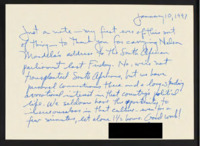 January 15, 1991
Just a note — my first ever of this sort
of thing — to thank you for carrying Nelson
Mandela's address to the South African
parliament last Friday. No, we're not
transplanted South Africans, but we have
personal connections there and a long-standing
interest in that country's political
life. We seldom have the opportunity to
in that caliber even for a
few minutes, let alone 1½ hours. Good work!